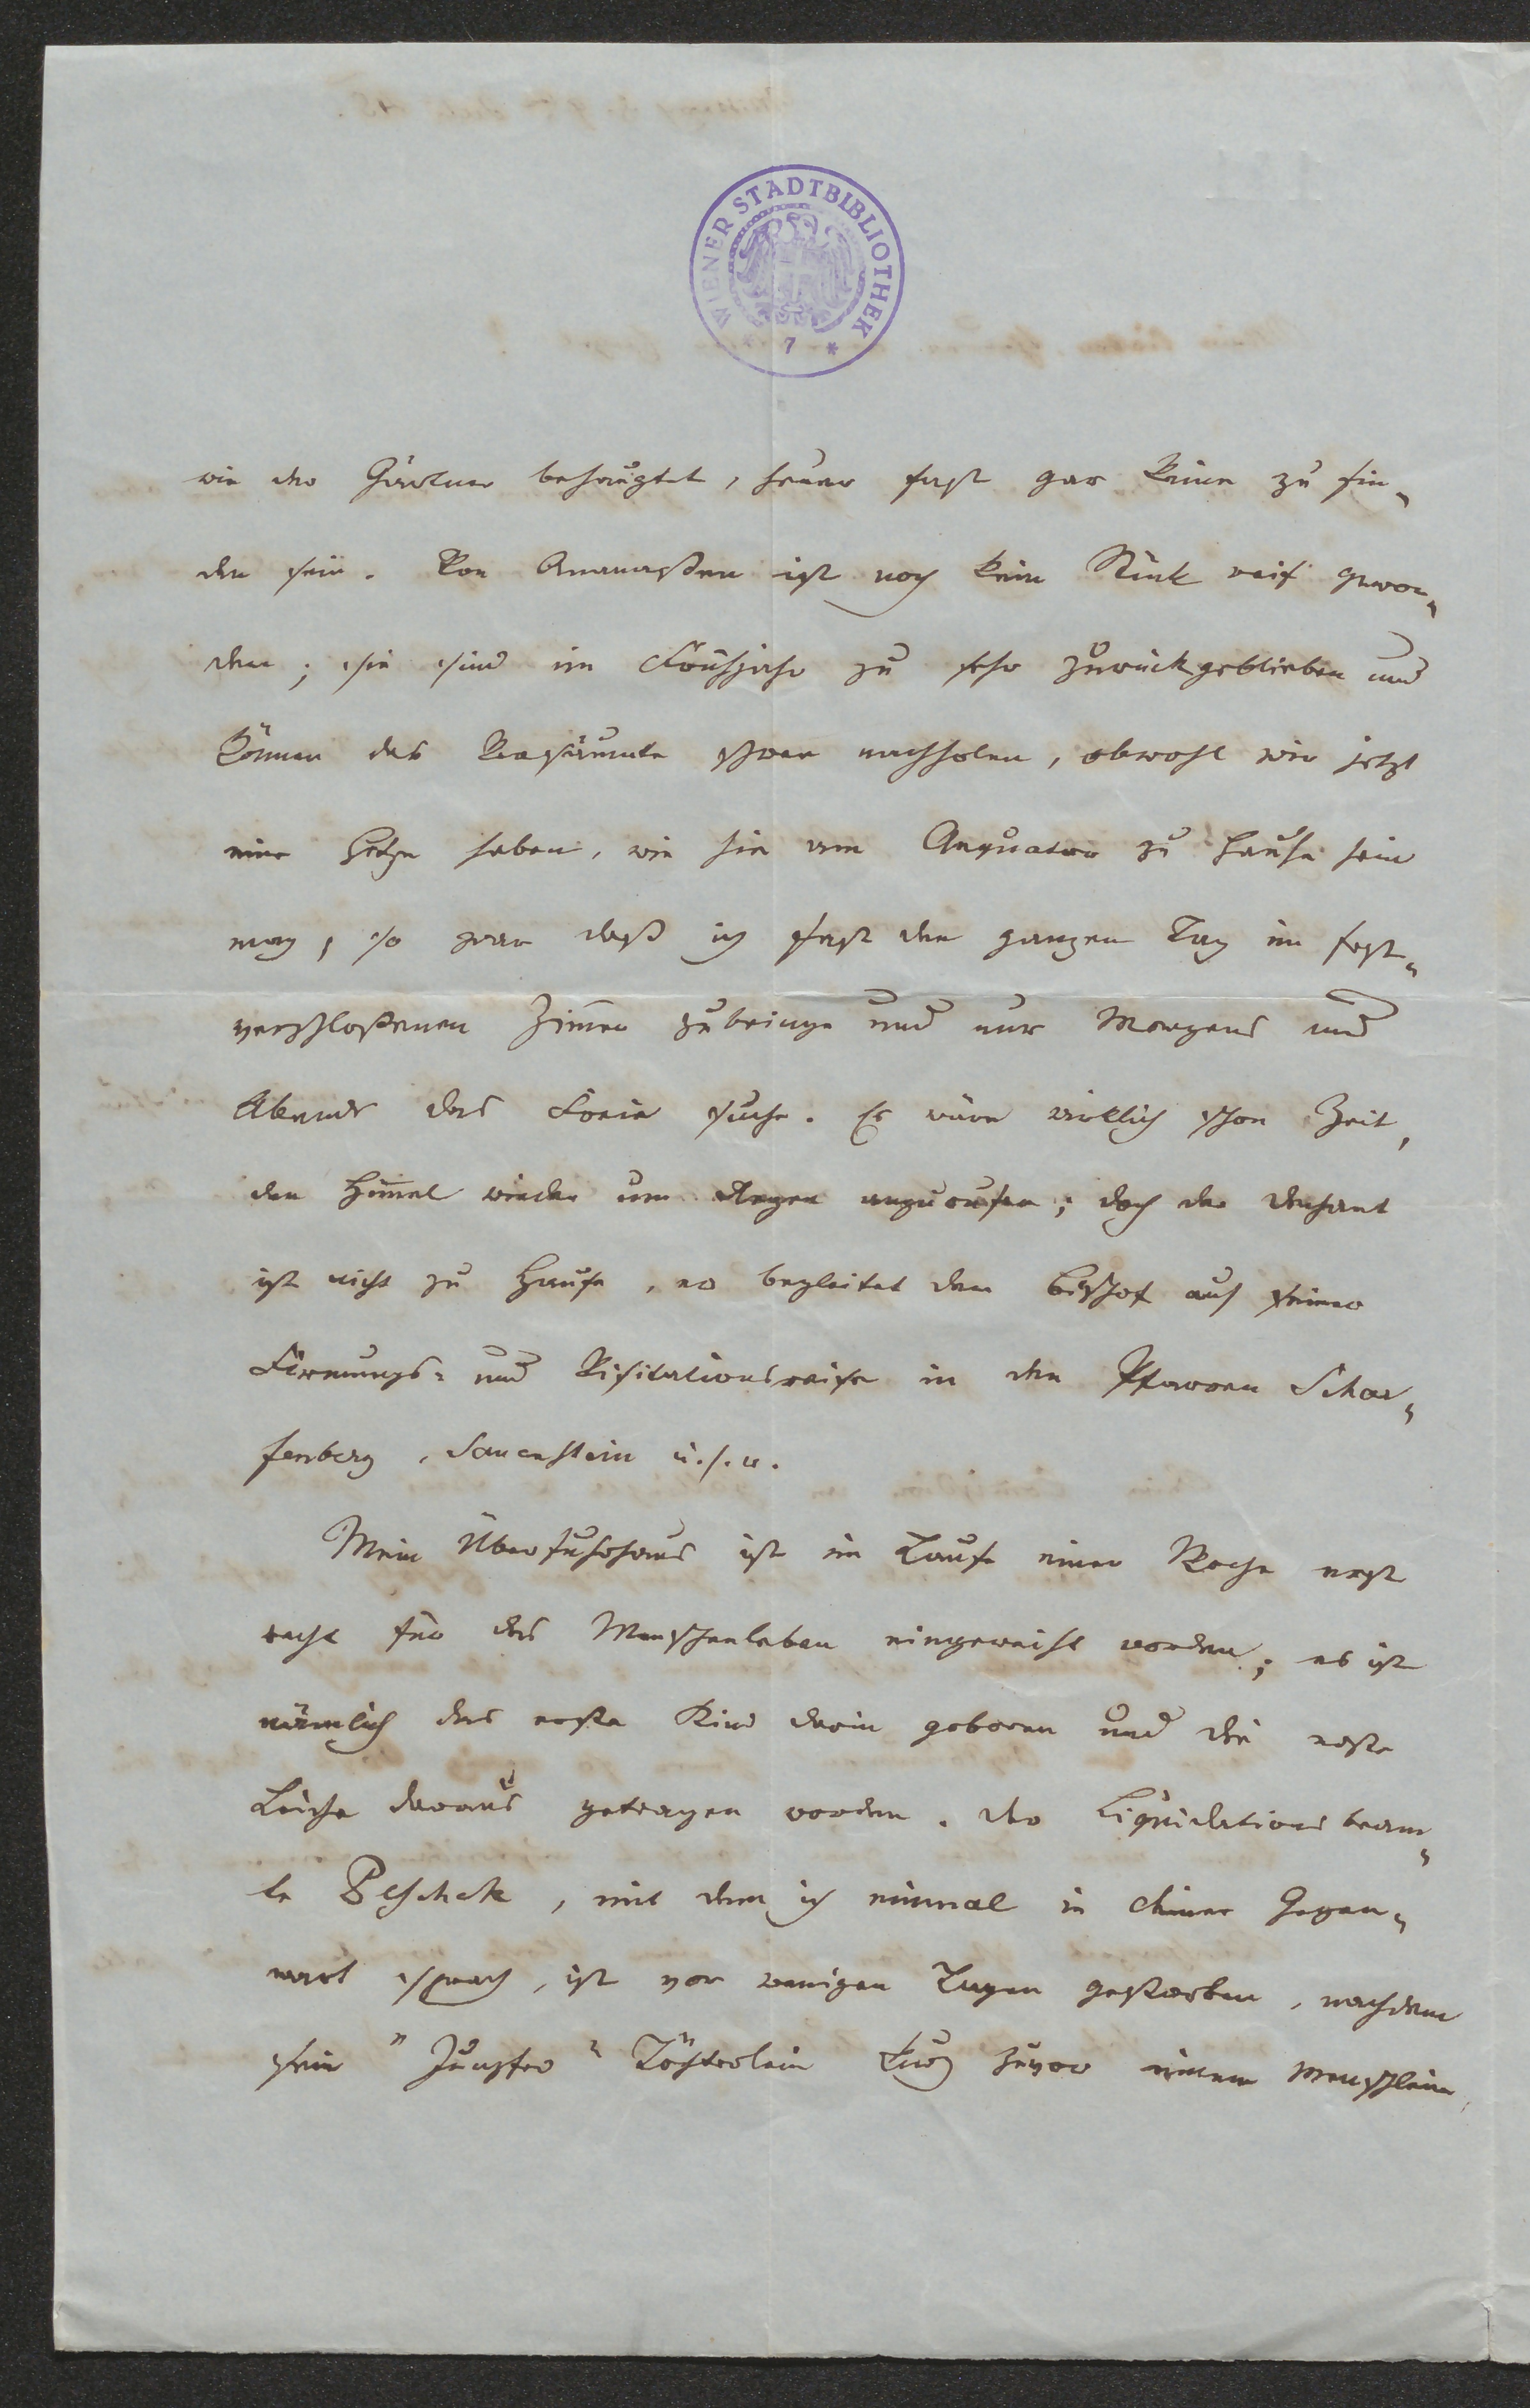 WIENER STADTBIBLIOTHEK
* 7 *
wie der Gärtner behauptet, heuer fast gar keine zu fin-
den sein. Von Ananaßen ist noch kein Stück reif gewor-
den; sie sind im Frühjahr zu sehr zurückgeblieben und
können das Versäumte schwer nachholen, obwohl wir jetzt
eine Hitze haben, wie sie am Aequator zu Hause sein
mag, so zwar daß ich fast den ganzen Tag im fest-
verschloßenen Zimmer zubringe und nur Morgens und
Abends das Freie suche. Es wäre wirklich schon Zeit,
den Himmel wieder um Regen anzurufen; doch der Dechant
ist nicht zu Hause, er begleitet den Bischof auf seiner
Firmungs- und Visitationsreise in den Pfarren Schar-
fenberg, Sauenstein u.s.w.
Mein Überfuhrhaus ist im Laufe einer Woche erst
recht für das Menschenleben eingeweiht worden; es ist
nämlich das erste Kind darin geboren und die erste
Leiche daraus getragen worden. Der Liquidationsbeam-
te Peschek, mit dem ich einmal in Deiner Gegen-
wart sprach, ist vor wenigen Tagen gestorben, nachdem
sein "Jungfer" Töchterlein kurz zuvor einem Menschlein